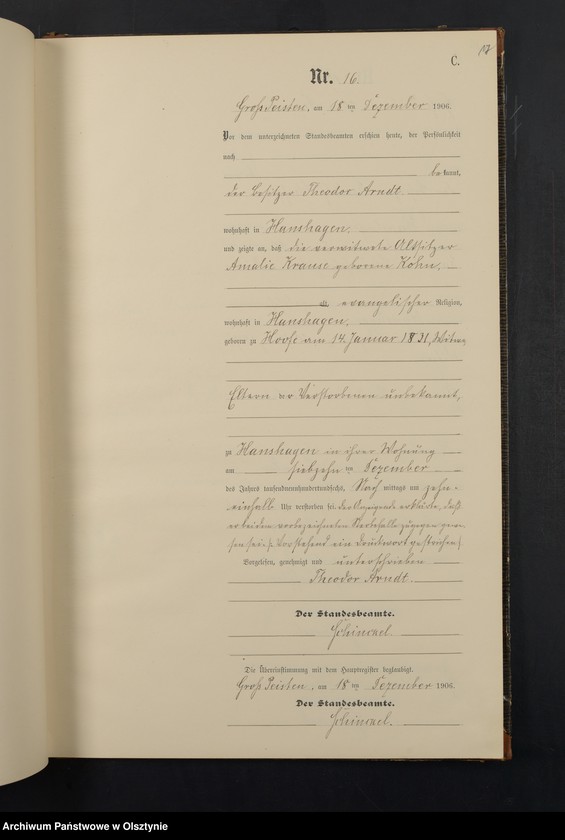 17
C.
Nr. 16
Groß Peisten, am 18ten Dezember 1906.
Vor dem unterzeichneten Standesbeamten erschien heute, der Persönlichkeit
nach
bekannt,
der Besitzer Theodor Arndt
wohnhaft in Hanshagen,
und zeigte an, daß die verwitwete Altsitzer
Amalie Krause geborene Kohn,
evangelischer Religion,
wohnhaft in Hanshagen,
geboren zu am 14. Januar 1831, Witwe,
Eltern der Verstorbenen unbekannt,
zu Hanshagen in ihrer Wohnung
am siebzehnten Dezember
des Jahres tausendneunhundertundsechs, Nachmittags um zehn-
einhalb Uhr verstorben sei. Der Anzeigende erklärte, daß
er bei dem vorbezeichneten Sterbefalle zugegen gewe-
sen sei. (: Vorstehend ein Druckwort gestrichen :)
Vorgelesen, genehmigt und unterschrieben
Theodor Arndt.
Der Standesbeamte.
Die Übereinstimmung mit dem Hauptregister beglaubigt.
Groß Peisten, am 18ten Dezember 1906.
Der Standesbeamte.
Archiwum Państwowe w Olsztynie